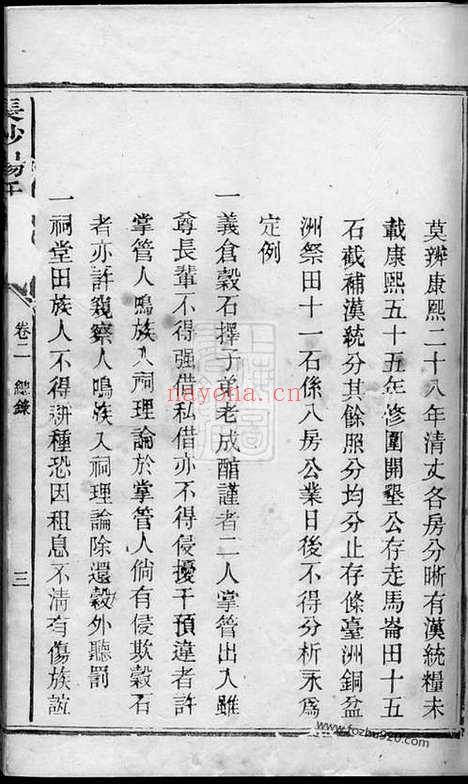 莫辨康熙二十八年清丈各房分晰有漢統糧未
載康熙五十五年修圍開墾公存走馬崙田十五
石截補漢統分其餘照分均分止存條臺洲銅盆
洲祭田十一石係八房公業日後不得分析永為
定例
一義倉穀石擇子弟老成醕謹者二人掌管出入雖
尊長輩不得强借私借亦不得侵擾干預違者許
掌管人鳴族入祠理論於掌管人倘有侵欺穀石
者亦許窺察人鳴族入祠理論除還穀外聽罰
一祠堂田族人不得耕種恐因租息不清有傷族誼
長沙
卷二 總錄
三
nayona.cn
www.fozhu920.com